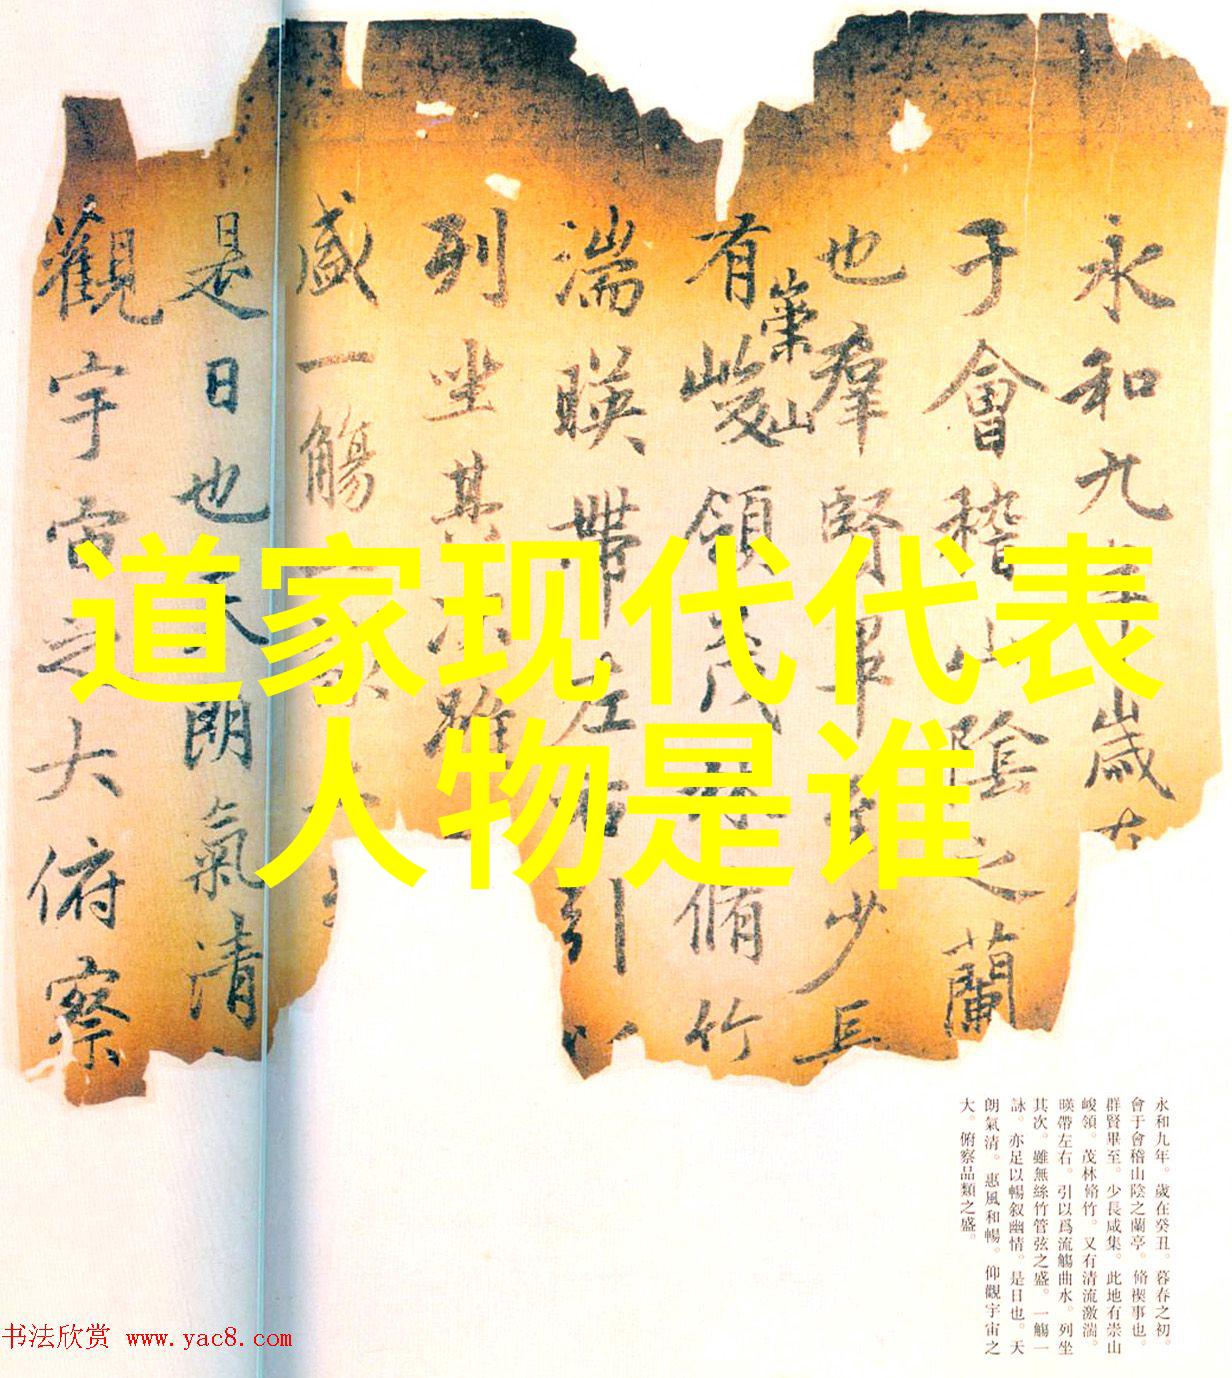 道家现代代表
人物是谁
永和九年歲在
于會稽山陰之蘭
也羣賢畢至少長
有崇山
峻領茂林脩竹
湍暎帶左右引以
列坐其次雖
盛一觴一詠
是日也天朗氣清
觀宇宙之大俯察
永和九年。歲在癸丑。暮春之初。
會于會稽山陰之蘭亭。脩禊事也。
群賢畢至。少長咸集。此地有崇山
峻領。茂林脩竹。又有清流激湍。
暎帶左右。引以爲流觴曲水。列坐
其次。雖無絲竹管弦之盛。一觴一
詠。亦足以暢叙幽情。是日也。天
朗氣清。惠風和暢。仰觀宇宙之
大。俯察品類之盛。
书法欣赏 www.yac8.com